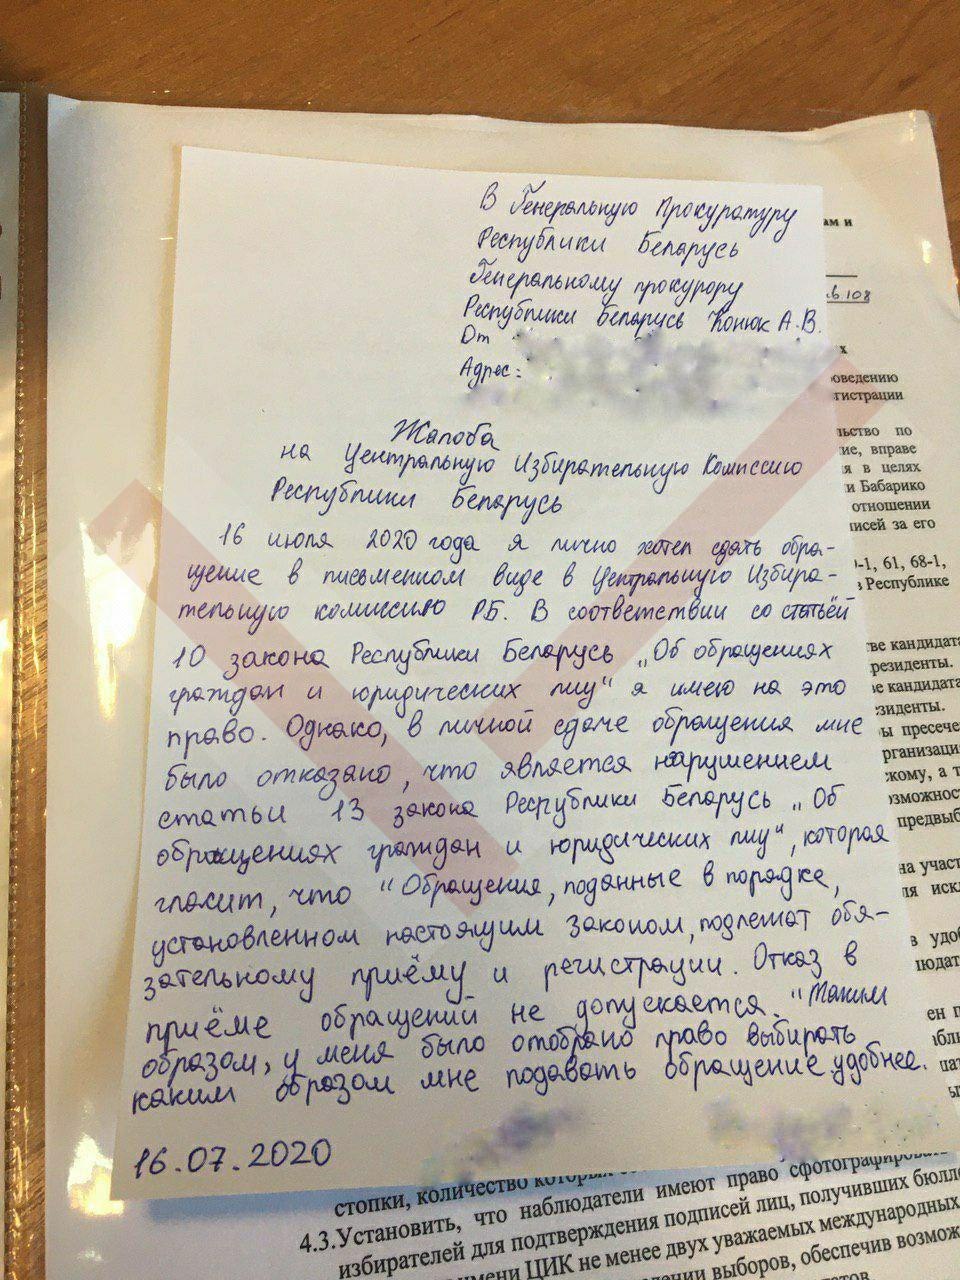 В Генеральную Прокуратуру
Республики Беларусь
Генеральному прокурору
Республики Беларусь Конюк А.В.
От
Адрес:
Жалоба
на Центральную Избирательную Комиссию
Республики Беларусь
16 июля 2020 года я лично хотел сдать обра-
щение в письменном виде в Центральную Избира-
тельную комиссию РБ. В соответствии со статьёй
10 закона Республики Беларусь "Об обращениях
граждан и юридических лиц" я имею на это
право. Однако, в личной сдаче обращения мне
было отказано, что является нарушением
статьи 13 закона Республики Беларусь "Об
обращениях граждан и юридических лиц", которая
гласит, что "Обращения, поданные в порядке,
установленном настоящим законом, подлежат обя-
зательному приёму и регистрации. Отказ в
приёме обращений не допускается." Таким
образом, у меня было отобрано право выбирать
каким образом мне подавать обращение удобнее.
16.07.2020
ам и
108
оведению
гистрации
ьство по
ие, вправе
я в целях
и Бабарико
отношении
исей за его
-1, 61, 68-1,
в Республике
ве кандидата
резиденты.
е кандидата
зиденты.
ы пресече
рганизаци
скому, а т
озможност
предвыб
на участ
ия искл
в удоб
людат
ен п
стопки, количество которых
4.3.Установить, что наблюдатели имеют право сфотографировать
избирателей для подтверждения подписей лиц, получивших бюлле
имени ЦИК не менее двух уважаемых международных
дении выборов, обеспечив возмож